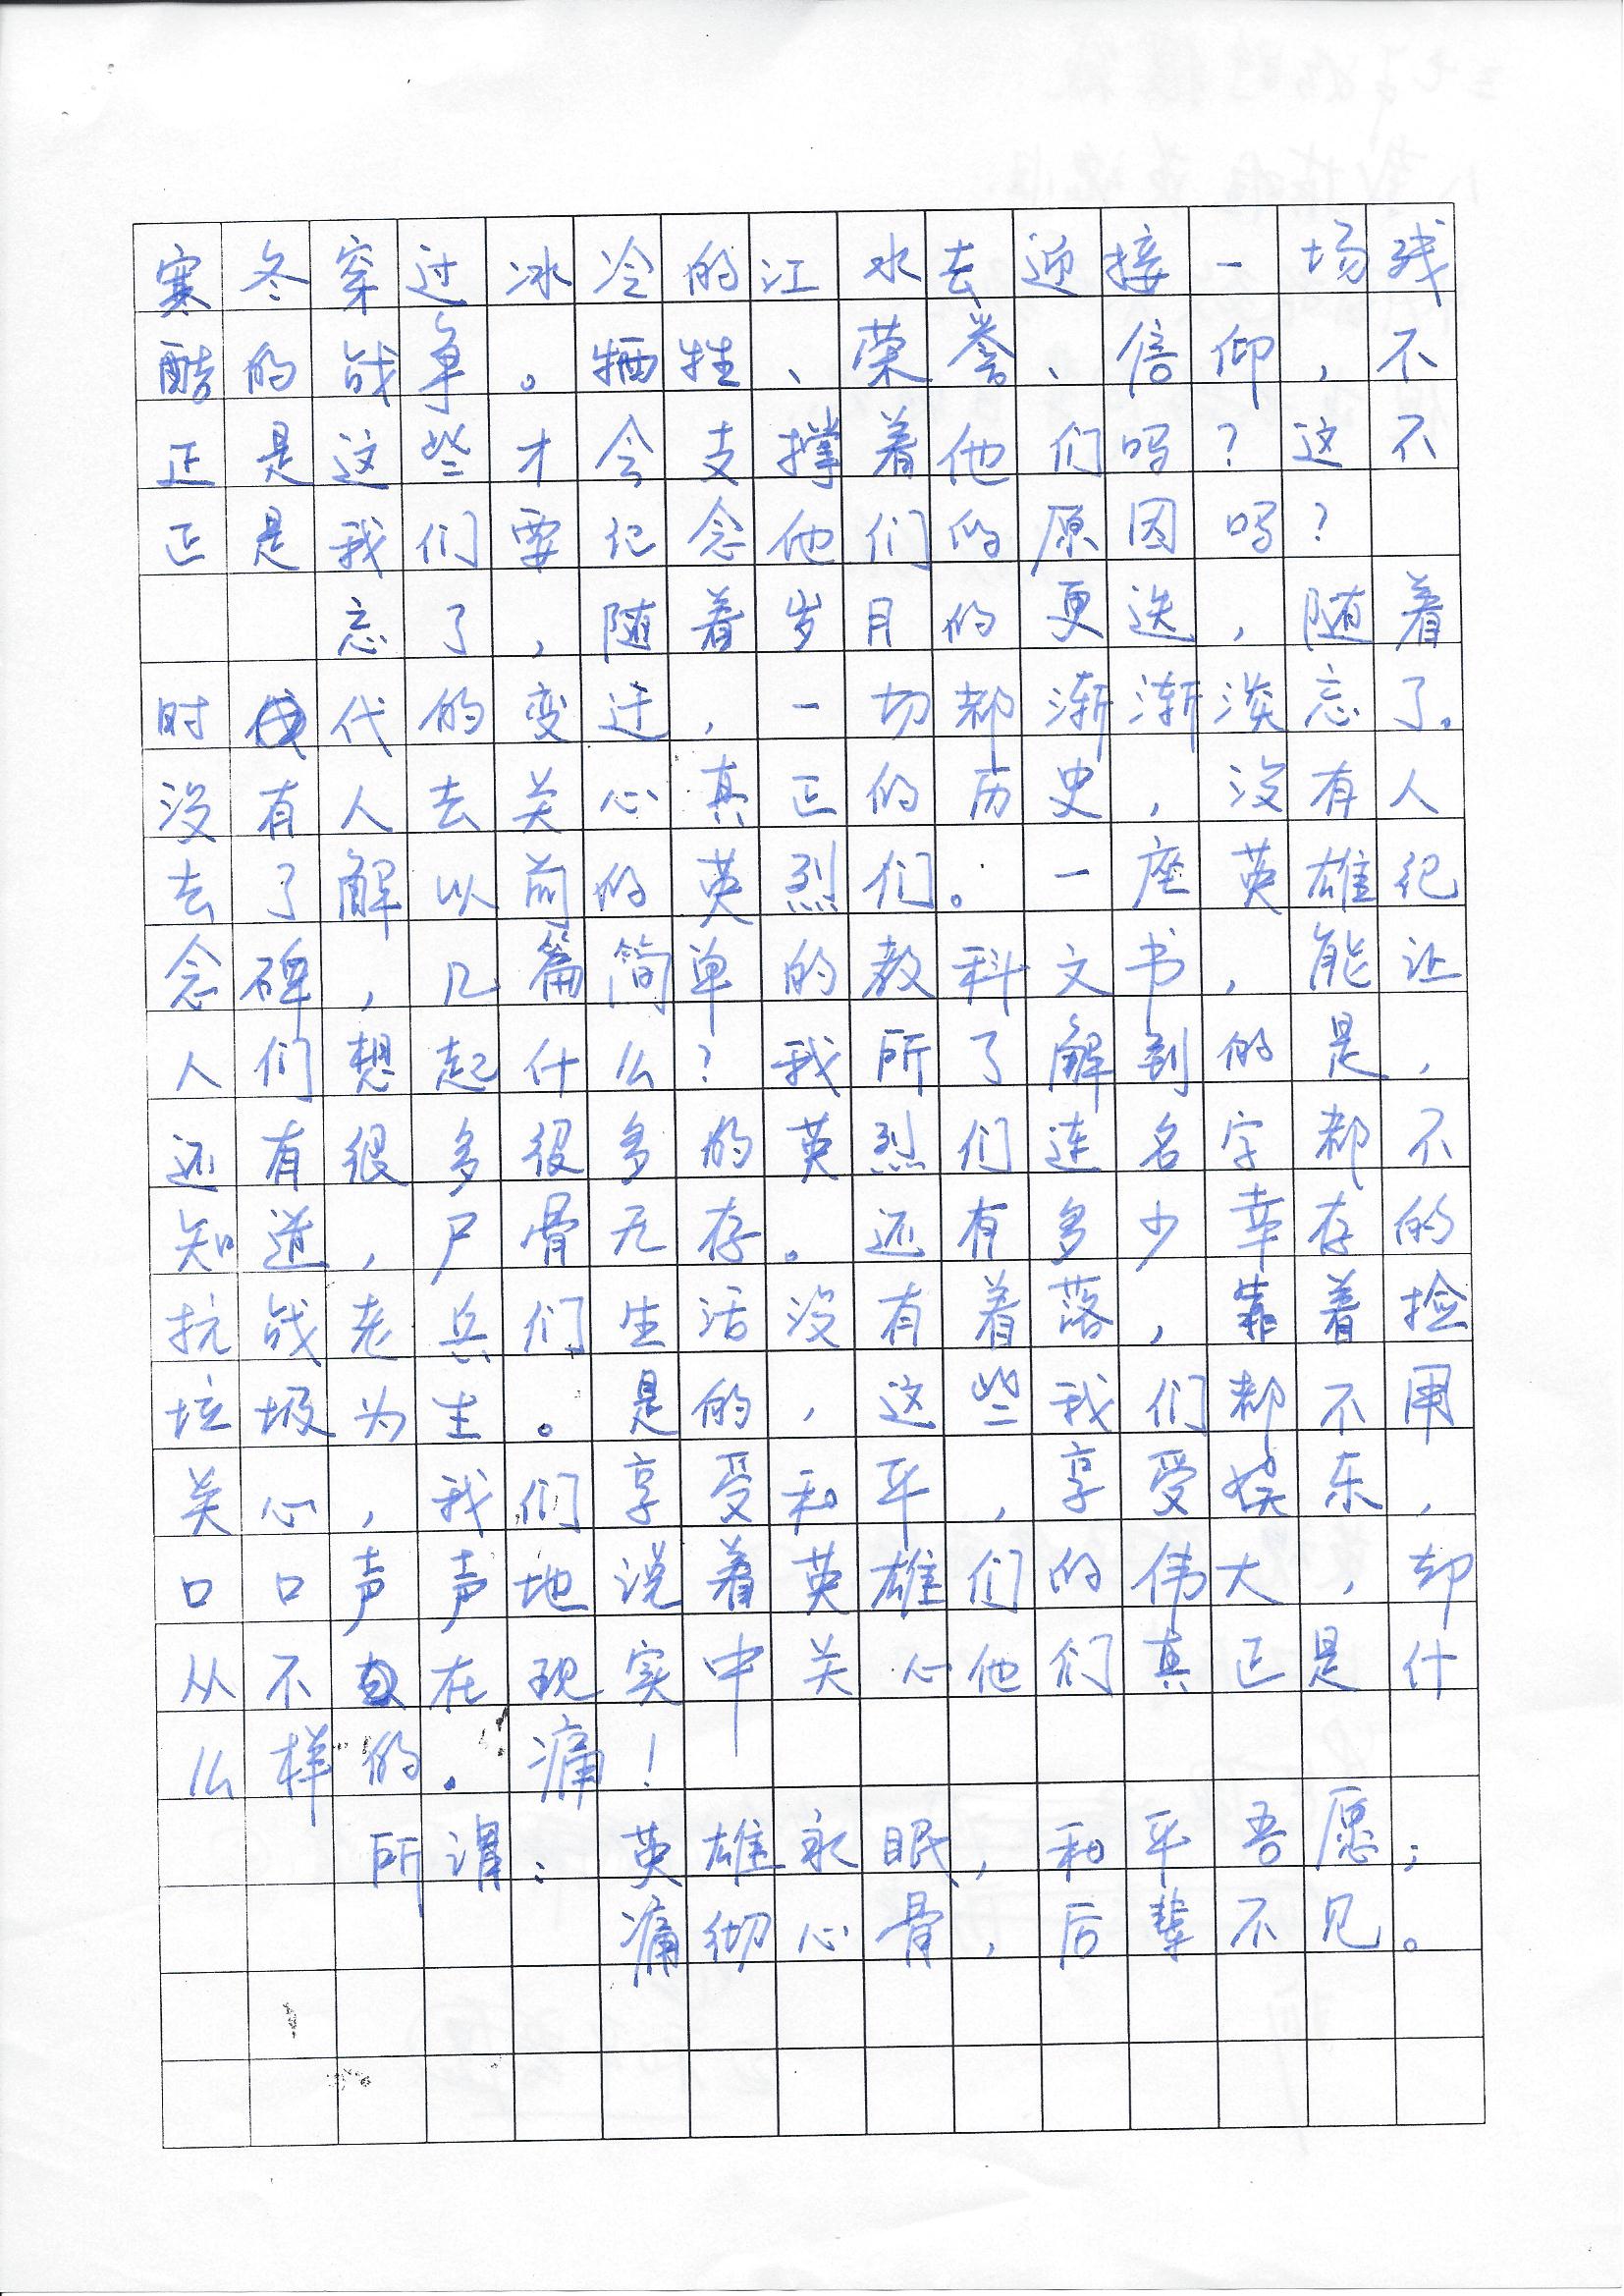 寒冬穿过冰冷的江水去迎接一场残
酷的战争。牺牲、荣誉、信仰，不
正是这些才会支撑着他们吗？这不
正是我们要纪念他们的原因吗？
忘了，随着岁月的更迭，随着
时代的变迁，一切都渐渐淡忘了。
没有人去关心真正的历史，没有人
去了解以前的英烈们。一座英雄纪
念碑，几篇简单的教科文书，能让
人们想起什么？我所了解到的是，
还有很多很多的英烈们连名字都不
知道，尸骨无存。还有多少幸存的
抗战老兵们生活没有着落，靠着捡
垃圾为生。是的，这些我们都不用
关心，我们享受和平，享受娱乐，
口口声声地说着英雄们的伟大，却
从不在现实中关心他们真正是什
么样的。痛！
所谓：英雄永眠，和平吾愿；
痛彻心骨，后辈不见。